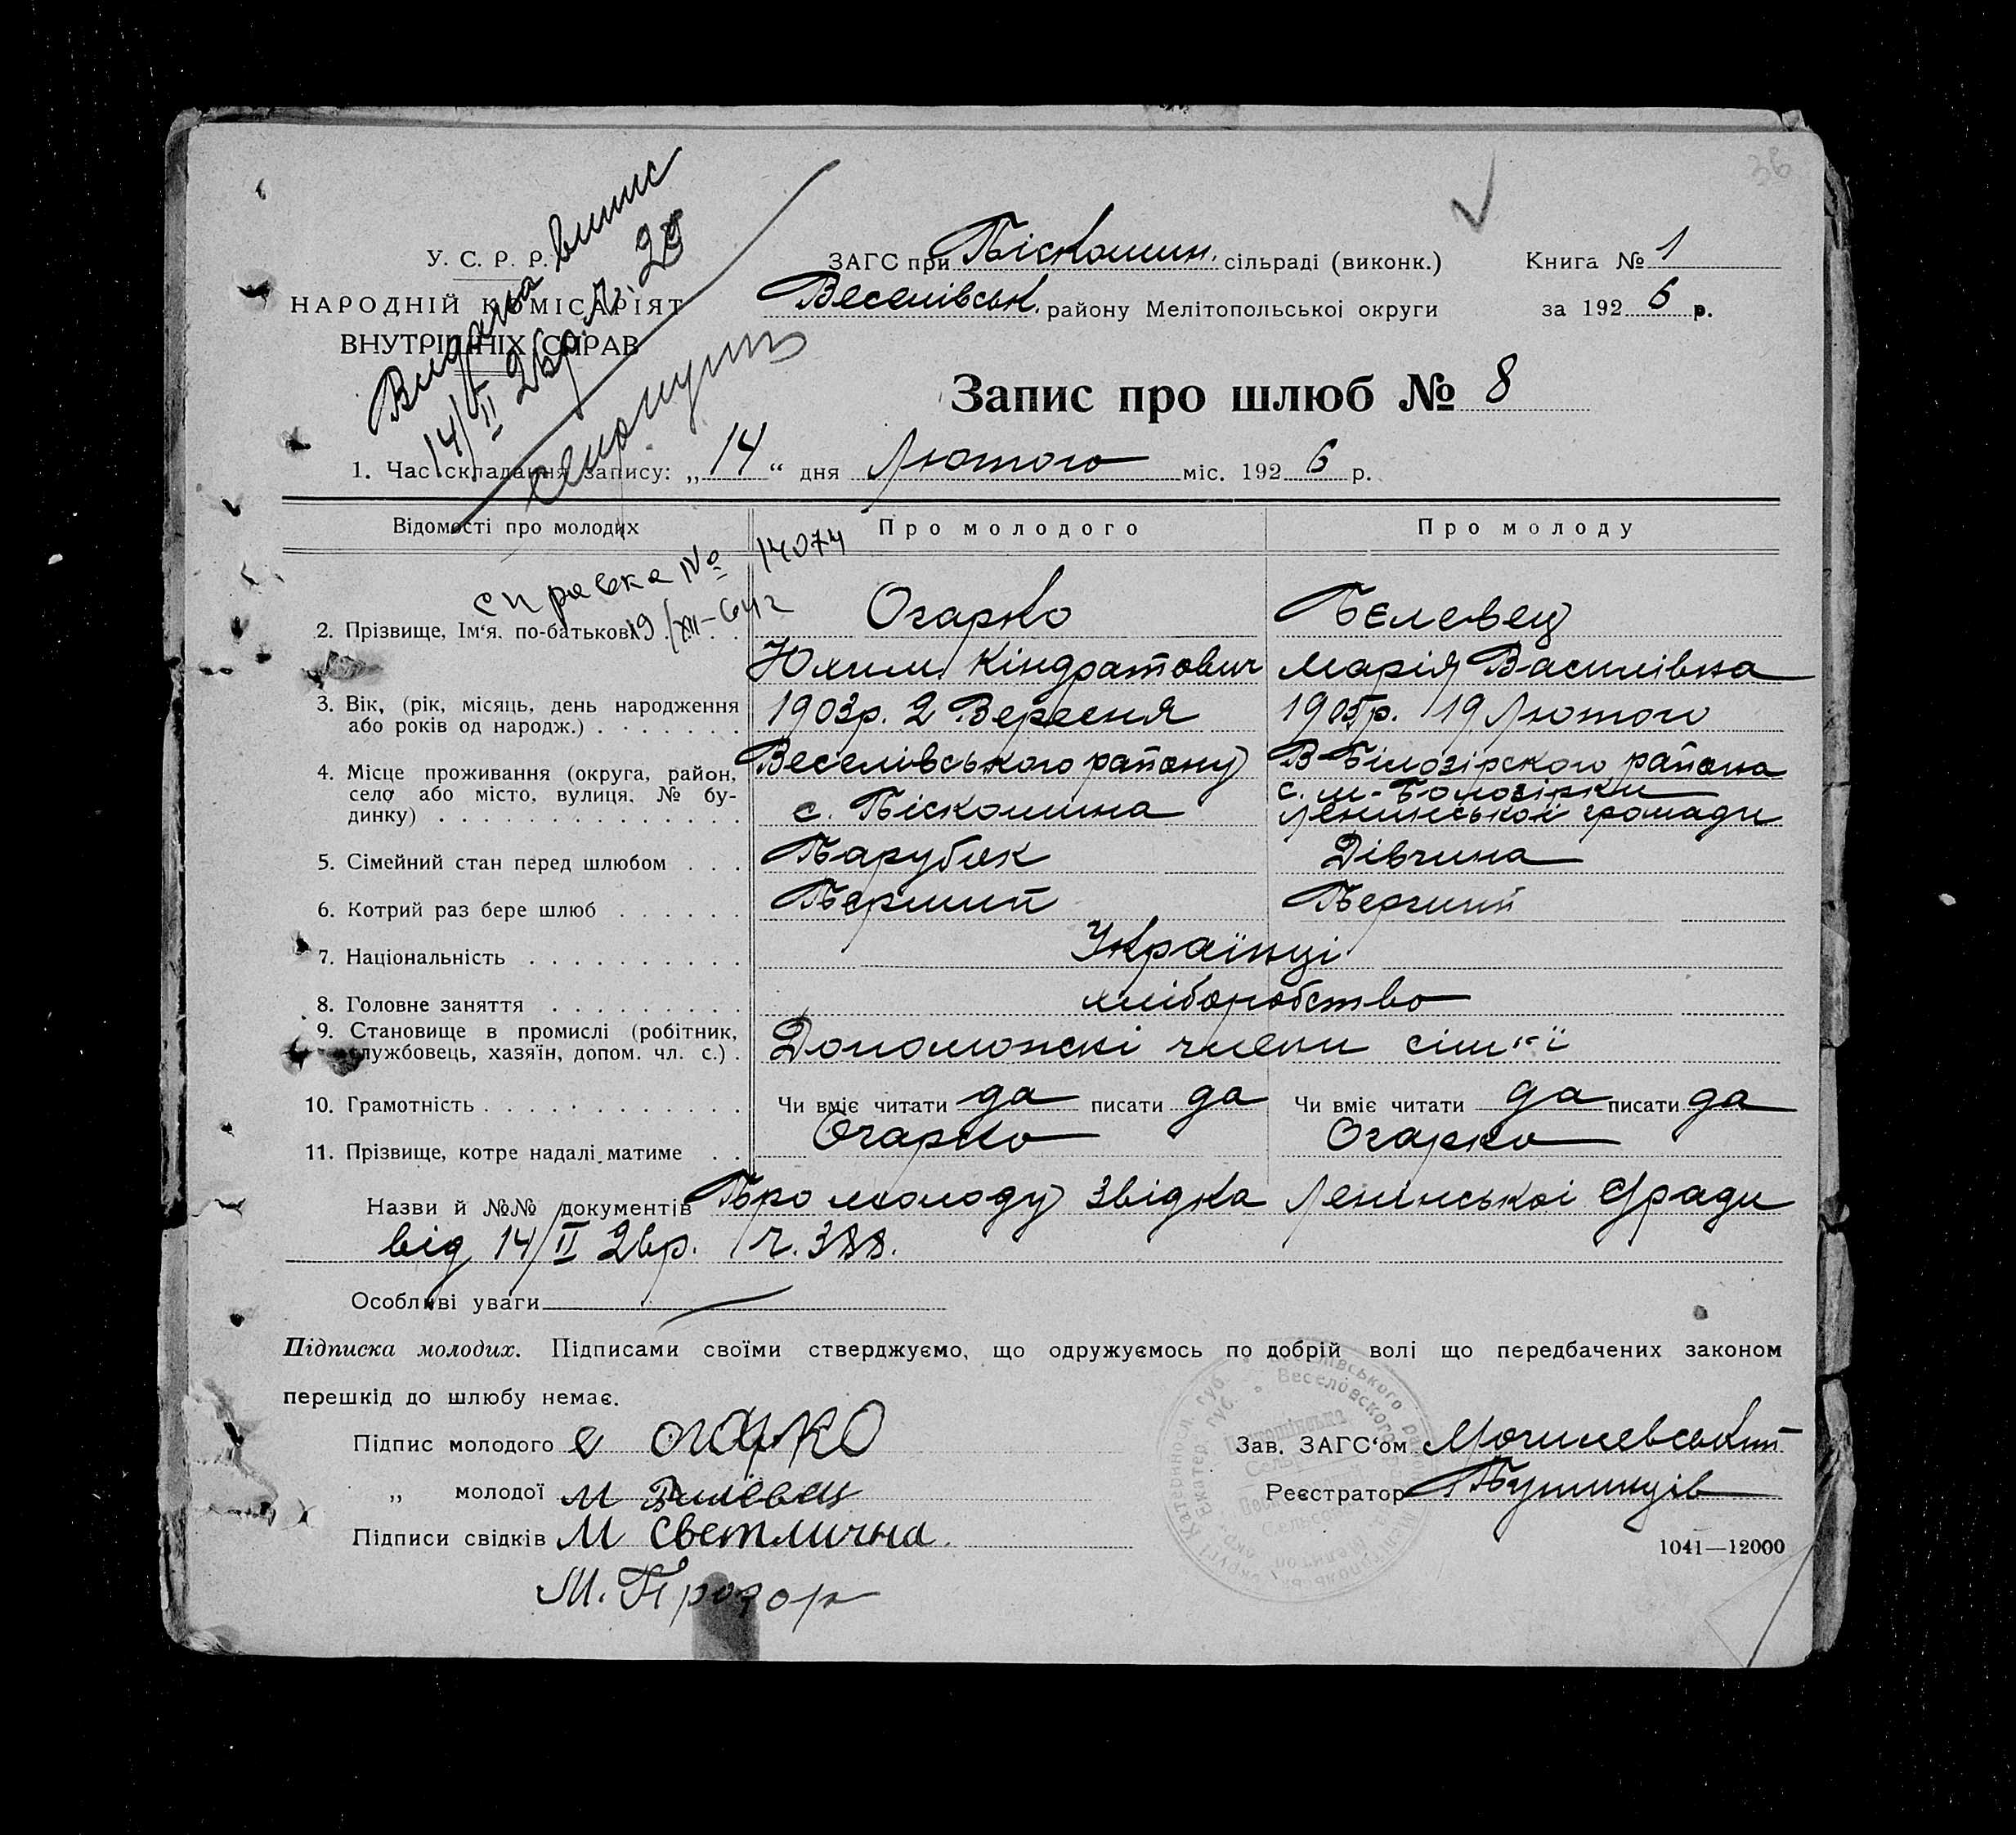 36
У. С. Р. Р.
НАРОДНІЙ КОМІСАРІЯТ
ВНУТРІШНІХ СПРАВ
Видана випис
14/II 26р. №. 25
ЗАГС при Піскошин. сільраді (виконк.)
Веселівськ. району Мелітопольської округи
Книга № 1
за 1926 р.
Запис про шлюб № 8
1. Час складання запису: „14“ дня Лютого міс. 1926 р.
Відомості про молодих
Про молодого
Про молоду
справка № 14074
19/XII-64 г
2. Прізвище, Ім'я, по-батькові
Огарко
Юхим Кіндратович
Бєлевец
Марія Василівна
3. Вік, (рік, місяць, день народження
або років од народж.)
1903р. 2 Вересня
1905р. 19 Лютого
4. Місце проживання (округа, район,
село або місто, вулиця, № бу-
динку)
Веселівського району
с. Піскошина
В-Білозірского района
с. м-Білозірки
Ленинської громади
5. Сімейний стан перед шлюбом
Парубок
Дівчина
6. Котрий раз бере шлюб
Перший
Перший
7. Національність
Українці
8. Головне заняття
хліборобство
9. Становище в промислі (робітник,
службовець, хазяїн, допом. чл. с.)
Допоможскі члени сім'ї
10. Грамотність
Чи вміє читати да писати да
Чи вміє читати да писати да
11. Прізвище, котре надалі матиме
Огарко
Огарко
Назви й №№ документів Про молоду звідка Ленінської С/ради
від 14/II 26р. ч. 388.
Особливі уваги
Підписка молодих. Підписами своїми стверджуємо, що одружуємось по добрій волі що передбачених законом
перешкід до шлюбу немає.
Підпис молодого є огарко
„ молодої М Билевец
Підписи свідків М Светлична
М. Прозор
Зав. ЗАГС'ом Могилевський
Реєстратор
1041—12000